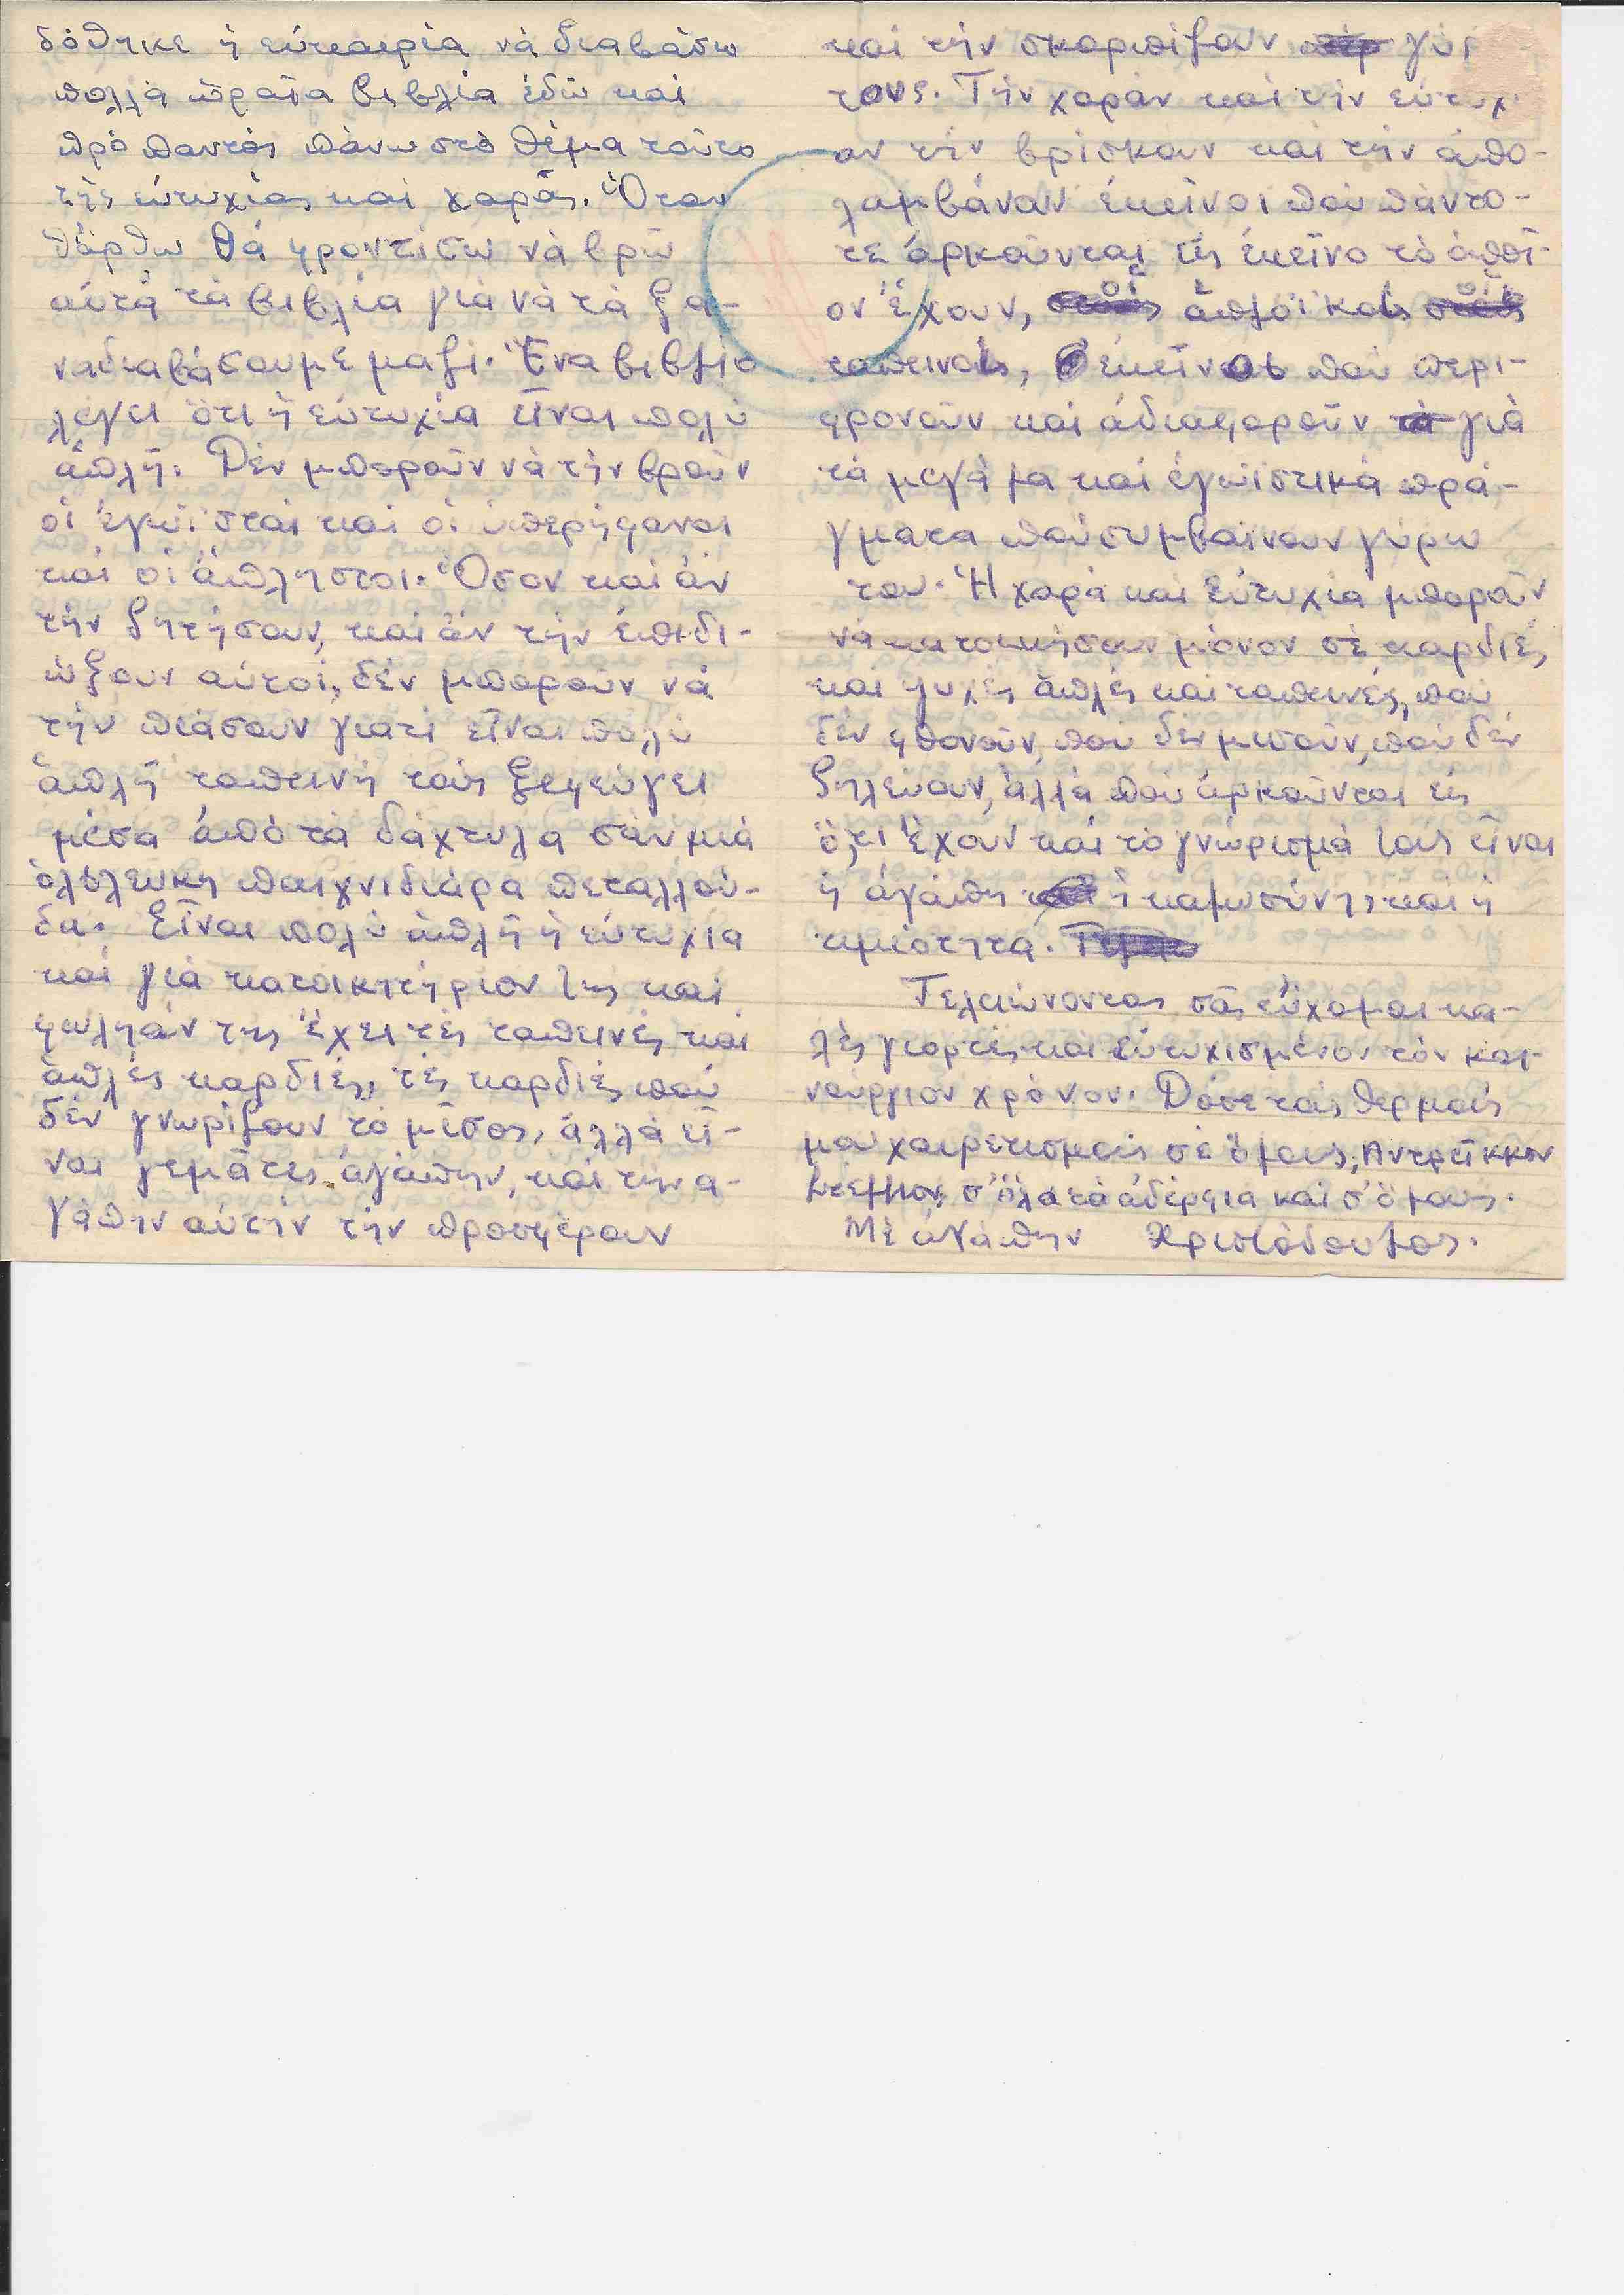 δόθηκε ἡ εὐκαιρία νὰ διαβάσω
πολλὰ ὡραῖα βιβλία ἐδῶ καὶ
πρὸ παντὸς πάνω στὸ θέμα τοῦτο
τῆς εὐτυχίας καὶ χαρᾶς. Ὅταν
θἄρθω θὰ φροντίσω νὰ βρῶ
αὐτὰ τὰ βιβλία γιὰ νὰ τὰ ξα-
ναδιαβάσουμε μαζί. Ἕνα βιβλίο
λέγει ὅτι ἡ εὐτυχία εἶναι πολὺ
ἁπλῆ. Δὲν μποροῦν νὰ τὴν βροῦν
οἱ ἐγωϊσταὶ καὶ οἱ ὑπερήφανοι
καὶ οἱ ἄπληστοι. Ὅσον καὶ ἂν
τὴν ζητήσουν, καὶ ἂν τὴν ἐπιδι-
ώξουν αὐτοί, δὲν μποροῦν νὰ
τὴν πιάσουν γιατὶ εἶναι πολὺ
ἁπλῆ ταπεινὴ τοὺς ξεφεύγει
μέσα ἀπὸ τὰ δάχτυλα σὰν μιὰ
ὁλόλευκη παιχνιδιάρα πεταλλού-
δα. Εἶναι πολὺ ἁπλῆ ἡ εὐτυχία
καὶ γιὰ κατοικητήριον της καὶ
φωλιὰν της ἔχει τὲς ταπεινὲς καὶ
ἁπλὲς καρδιές, τὲς καρδιὲς ποὺ
δὲν γνωρίζουν τὸ μῖσος, ἀλλὰ εἶ-
ναι γεμᾶτες ἀγάπην, καὶ τὴν α-
γάπην αὐτὴν τὴν προσφέρουν
καὶ τὴν σκορπίζουν γύρ
τους. Τὴν χαρὰν καὶ τὴν εὐτυχ
αν τὴν βρίσκουν καὶ τὴν ἀπο-
λαμβάνουν ἐκεῖνοι ποὺ πάντο-
τε ἀρκοῦνται εἰς ἐκεῖνο τὸ ὁποῖ-
ον ἔχουν, οἱ ἁπλοϊκοὶ οἱ
ταπεινοί, ἐκεῖνοι ποὺ περι-
φρονοῦν καὶ ἀδιαφοροῦν γιὰ
τὰ μεγάλα καὶ ἐγωϊστικὰ πρά-
γματα ποὺ συμβαίνουν γύρω
του. Ἡ χαρὰ καὶ εὐτυχία μποροῦν
νὰ κατοικήσουν μόνον σὲ καρδιὲς
καὶ ψυχὲς ἁπλὲς καὶ ταπεινές, ποὺ
δὲν φθονοῦν, ποὺ δὲν μισοῦν, ποὺ δὲν
ζηλεύουν, ἀλλὰ ποὺ ἀρκοῦνται εἰς
ὅ,τι ἔχουν καὶ τὸ γνώρισμά τους εἶναι
ἡ ἀγάπη ἡ καλωσύνη, καὶ ἡ
τιμιότητα.
Τελειώνοντας σᾶς εὔχομαι κα-
λὲς γιορτὲς καὶ εὐτυχισμένον τὸν και-
νούργιον χρόνον. Δόσε τοὺς θερμούς
μου χαιρετισμοὺς σὲ ὅλους, Αντρεῖκκον
Στέλλιον, σ' ὅλα τὰ ἀδέρφια καὶ σ' ὅλους.
Μὲ ἀγάπην Χριστόδουλος.